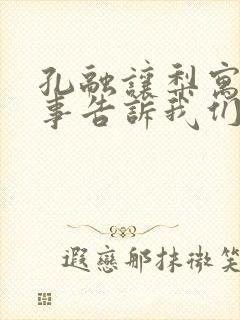 孔融讓梨寓
事告訴我们
遐戀那抹微笑